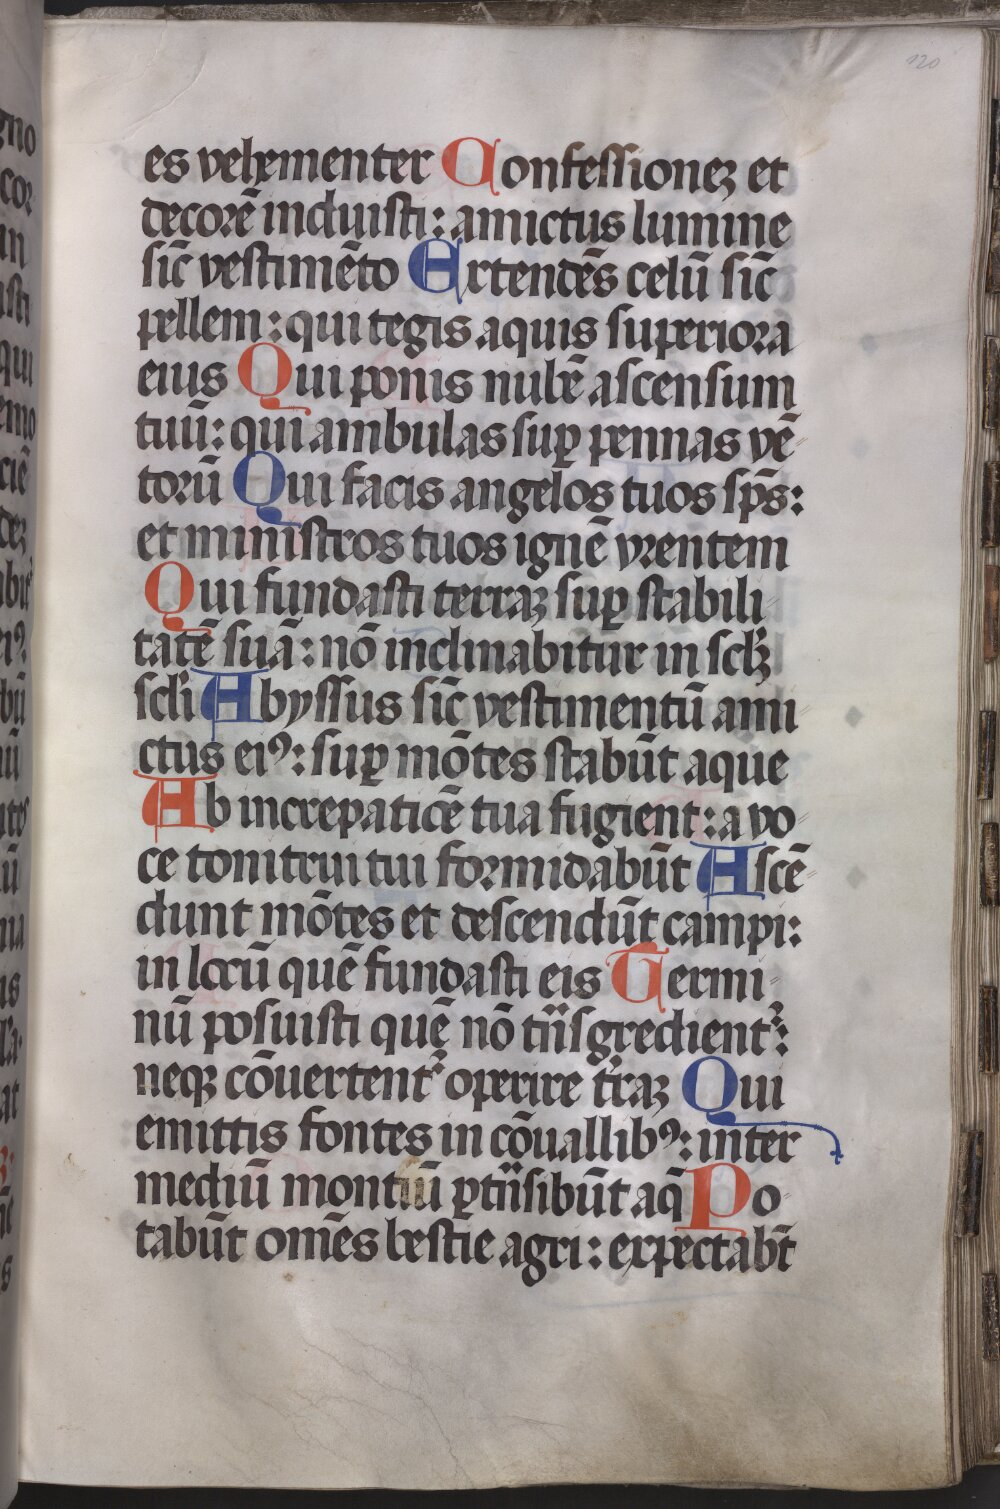 120
es vehementer Confessionez et
decorē induisti: amictus lumine
sic̄ vestimēto Extendēs celū sic̄
pellem: qui tegis aquis superiora
eius Qui ponis nubē ascensum
tuū: qui ambulas suꝑ pennas vē
torū Qui facis angelos tuos sp̄s:
et ministros tuos ignē vrentem
Qui fundasti terraz suꝑ stabili
tatē suā: nō inclinabitur in sclꝫ
scl'i Abyssus sic̄ vestimentū ami
ctus eiꝰ: suꝑ mōtes stabūt aque
Ab increpaticē tua fugient: a vo
ce tonitrui tui formidabūt Ascē
dunt mōtes et descendūt campi:
in locū quē fundasti eis Termi
nū posuisti quē nō tiisgredient᷑:
neqꝫ cōuertent᷑ operire t'raz Qui
emittis fontes in cōuallibꝰ: inter
mediū montiū ꝑtiisibūt aq̄ Po
tabūt omēs bestie agri: expectabt̄